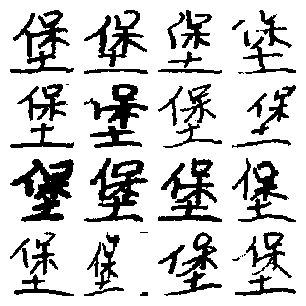 堡堡堡堡
堡堡堡堡
堡堡堡堡
堡堡堡堡